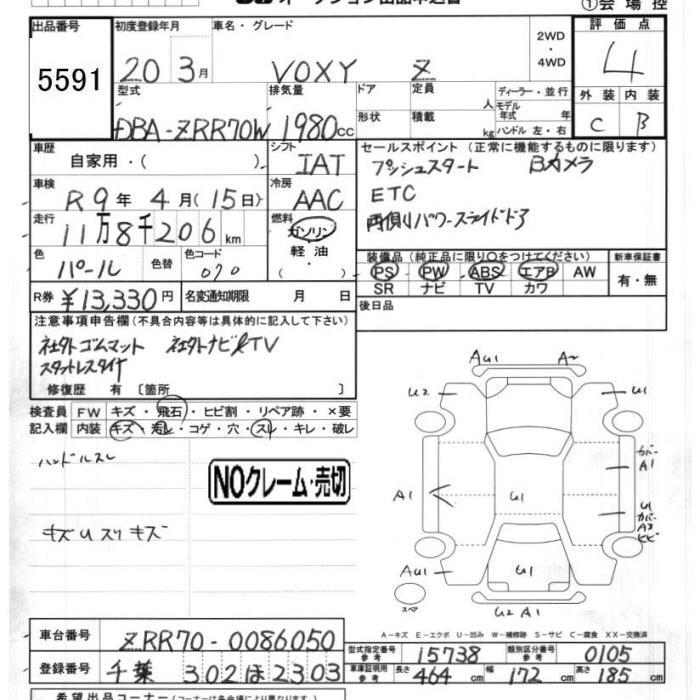 オークション出品申込書
①会場控
出品番号
5591
初度登録年月
20 3月
車名・グレード
VOXY Z
2WD
・
4WD
評価点
4
外装 内装
C B
型式
DBA-ZRR70W
排気量
1980cc
ドア
形状
定員 人
積載 kg
ディーラー・並行
モデル年式 年
ハンドル 左・右
車歴
自家用・( )
シフト
IAT
セールスポイント(正常に機能するものに限ります)
プッシュスタート Bカメラ
ETC
両側パワースライドドア
車検
R9年4月(15日)
冷房
AAC
走行
11万8千206km
燃料
ガソリン
軽油
色
パール
色替
色コード
070
装備品(純正品に限り○をつけてください)
PS PW ABS エアB AW
SR ナビ TV カワ
新車保証書
有・無
R券 ¥13,330円
名変通知期限 月 日
後日品
注意事項申告欄(不具合内容等は具体的に記入して下さい)
社外ゴムマット 社外ナビ&TV
スタットレスタイヤ
修復歴 有〔箇所 〕
検査員記入欄
FW キズ・飛石・ヒビ割・リペア跡・×要
内装 キズ・汚レ・コゲ・穴・スレ・キレ・破レ
ハンドルスレ
キズUスリキズ
NOクレーム・売切
AU1 A2
U2 U1
カバー
A1
A1 U1
U1
カバー
A2
ヒビ
AU1 U1 U1
スペア
U2 A1
A-キズ E-エクボ U-凹み W-補修跡 S-サビ C-腐食 XX-交換済
車台番号 ZRR70-0086050
登録番号 千葉 302 ほ 2303
型式指定番号 参考 15738
類別区分番号 参考 0105
車庫証明用 参考 長さ 464cm 幅 172cm 高さ 185cm
希望出品コーナー